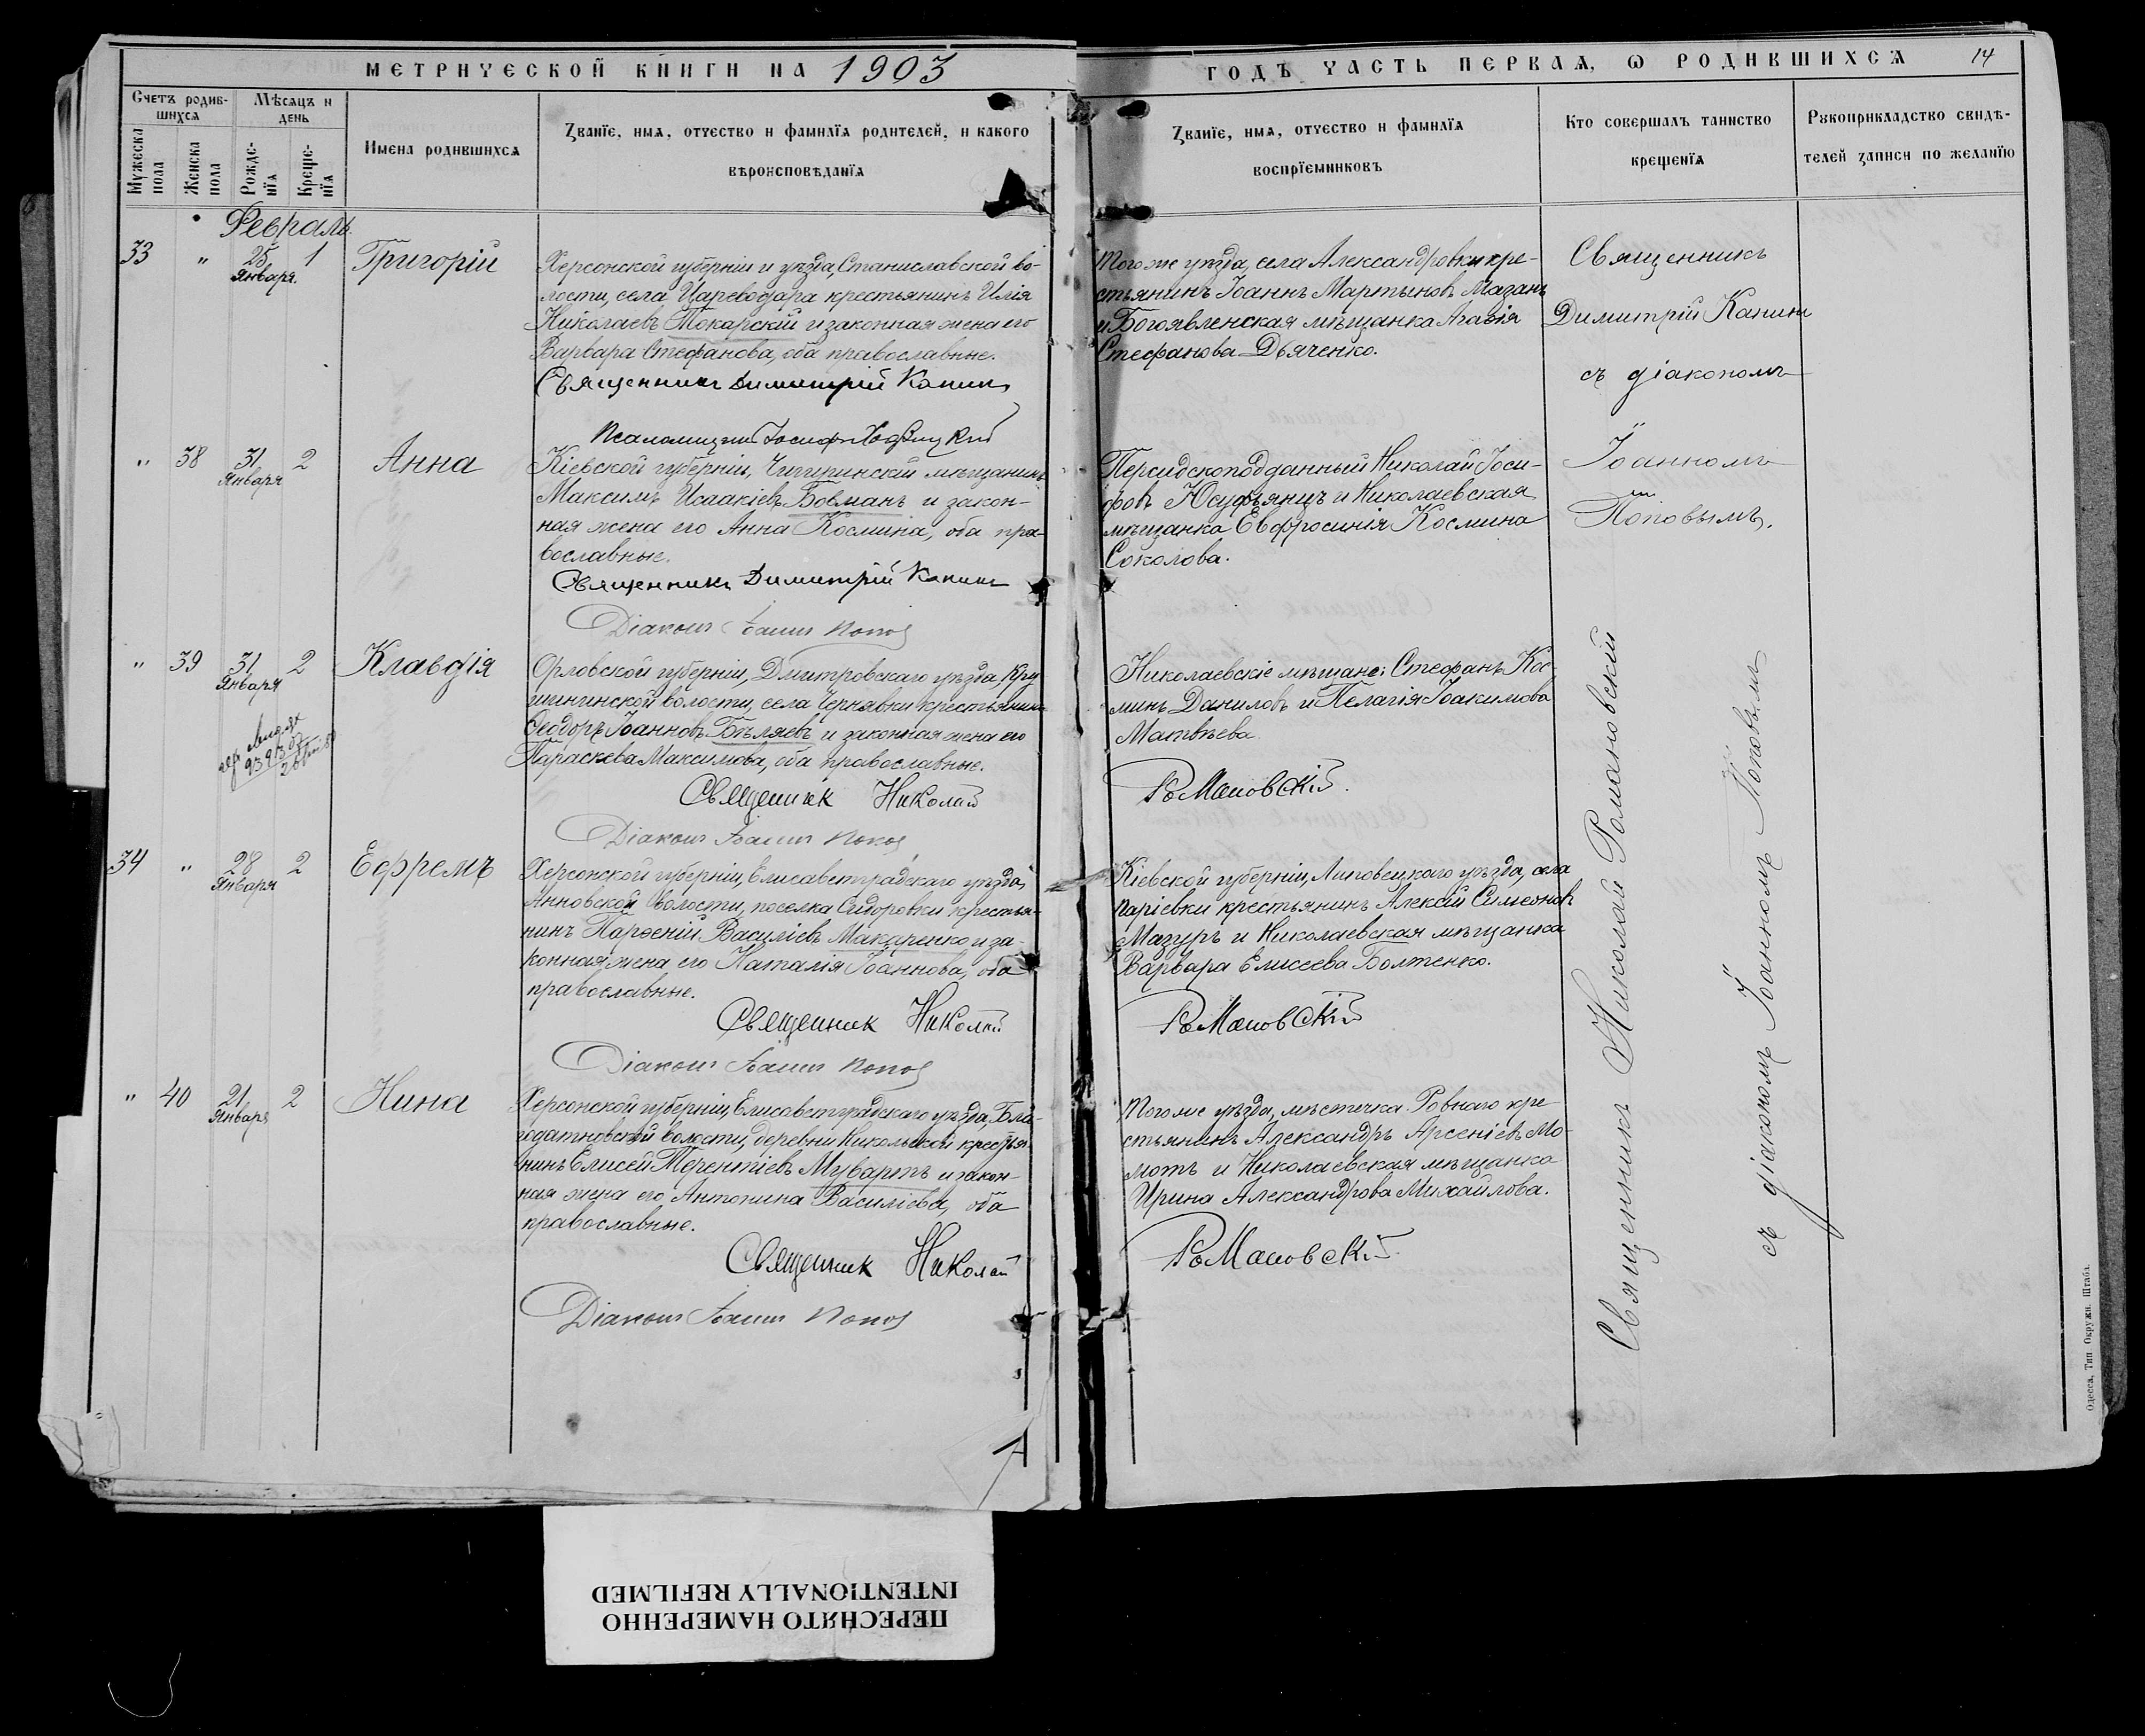 МЕТРИЧЕСКОЙ КНИГИ НА 1903
Счетъ родив-
шихся
Мѣсяцъ и
день
Мужеска
пола
Женска
пола
Рожде-
нія
Креще-
нія
Имена родившихся
Званіе, имя, отчество и фамилія родителей, и какого
вѣроисповѣданія
Февраль.
33 " 25 1 Григорій
Января.
Херсонской губерніи и уѣзда, Станиславской во-
лости, села Цареводара крестьянинъ Илія
Николаевъ Токарскій и законная жена его
Варвара Стефанова, оба православные.
Священникъ Димитрій Капинъ
Псаломщикъ Іосифъ
" 38 31 2 Анна
Января
Кіевской губерніи, Чигиринскій мѣщанинъ
Максимъ Исаакіевъ Бовманъ и закон-
ная жена его Анна Космина, оба пра-
вославные.
Священникъ Димитрій Капинъ
Діаконъ Іоаннъ Поповъ
" 39 31 2 Клавдія
Января
Орловской губерніи, Дмитровскаго уѣзда, Кру
волости, села Чернявки крестьянинъ
Ѳеодоръ Іоанновъ Бѣляевъ и законная жена его
Параскева Максимова, оба православные.
Священник Николай
Діаконъ Іоаннъ Поповъ
34 " 28 2 Ефремъ
Января
Херсонской губерніи, Елисаветградскаго уѣзда,
Анновской волости, поселка Сидоровки крестья-
нинъ Парѳеній Василіевъ Макаренко и за-
конная жена его Наталія Іоаннова, оба
православные.
Священник Николай
Діаконъ Іоаннъ Поповъ
" 40 21 2 Нина
Января
Херсонской губерніи, Елисаветградскаго уѣзда, Бла-
годатновской волости, деревни Никольской крестья
нинъ Елисей Терентіевъ Мувартъ и закон-
ная жена его Антонина Василіева, оба
православные.
Священник Николай
Діаконъ Іоаннъ Поповъ
ГОДЪ ЧАСТЬ ПЕРВАЯ, Ѡ РОДИВШИХСЯ 14
Званіе, имя, отчество и фамилія
воспріемниковъ
Кто совершалъ таинство
крещенія
Рукоприкладство свидѣ-
телей записи по желанію
Того же уѣзда, села Александровки кре-
стьянинъ Іоаннъ Мартыновъ Мазанъ
и Богоявленская мѣщанка Агаѳія
Стефанова Дьяченко.
Персидскоподданный Николай Іоси-
фовъ Юсуфьянцъ и Николаевская
мѣщанка Евфросинія Космина
Соколова.
Николаевскіе мѣщане: Стефанъ Кос-
минъ Даниловъ и Пелагія Іоакимова
Матвѣева
Романовскій.
Кіевской губерніи, Липовецкаго уѣзда, села
Паріевки крестьянинъ Алексій Симеоновъ
Мазуръ и Николаевская мѣщанка
Варвара Елисеева Болтенко.
Романовскій
Того же уѣзда, мѣстечка Ровнаго кре
стьянинъ Александръ Арсеніевъ Мо-
мотъ и Николаевская мѣщанка
Ирина Александрова Михайлова.
Романовскій.
Священникъ
Димитрій Капинъ
съ діакономъ
Іоанномъ
Поповымъ.
Священникъ Николай Романовскій
съ діакономъ Іоанномъ Поповымъ
Одесса, Тип. Окружн. Штаба.
ПЕРЕСНЯТО НАМЕРЕННО
INTENTIONALLY REFILMED